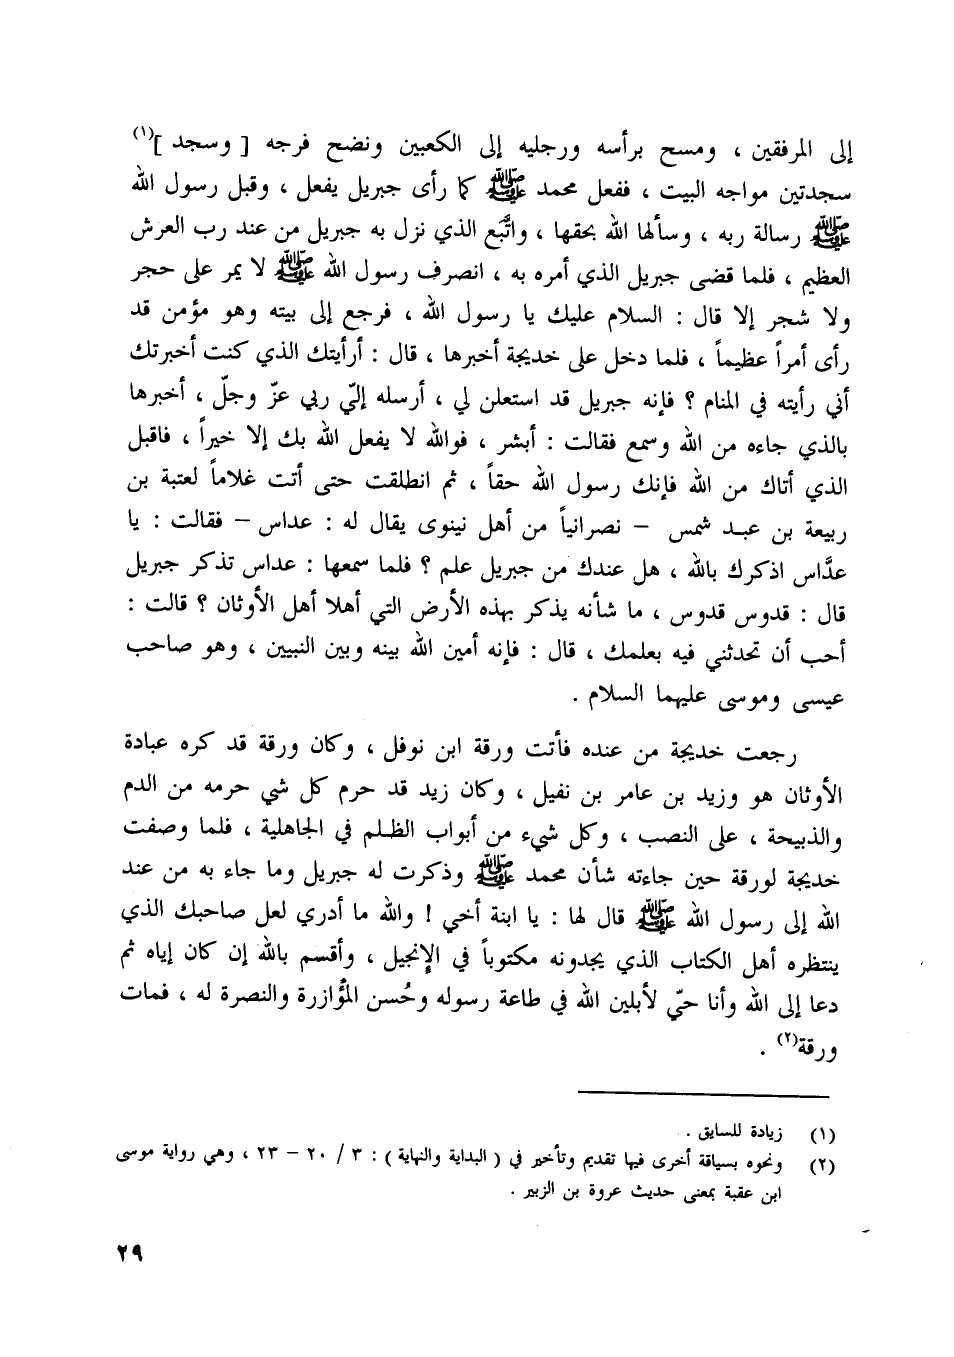 إلى المرفقين ، ومسح برأسه ورجليه إلى الكعبين ونضح فرجه [ وسجد ](١)
سجدتين مواجه البيت ، ففعل محمد ﷺ كما رأى جبريل يفعل ، وقبل رسول الله
ﷺ رسالة ربه ، وسألها الله بحقها ، واتَّبع الذي نزل به جبريل من عند رب العرش
العظيم ، فلما قضى جبريل الذي أمره به ، انصرف رسول الله ﷺ لا يمر على حجر
ولا شجر إلا قال : السلام عليك يا رسول الله ، فرجع إلى بيته وهو مؤمن قد
رأى أمراً عظيماً ، فلما دخل على خديجة أخبرها ، قال : أرأيتك الذي كنت أخبرتك
أني رأيته في المنام ؟ فإنه جبريل قد استعلن لي ، أرسله إليّ ربي عزّ وجلّ ، أخبرها
بالذي جاءه من الله وسمع فقالت : أبشر ، فوالله لا يفعل الله بك إلا خيراً ، فاقبل
الذي أتاك من الله فإنك رسول الله حقاً ، ثم انطلقت حتى أتت غلاماً لعتبة بن
ربيعة بن عبد شمس – نصرانياً من أهل نينوى يقال له : عداس – فقالت : يا
عدَّاس اذكرك بالله ، هل عندك من جبريل علم ؟ فلما سمعها : عداس تذكر جبريل
قال : قدوس قدوس ، ما شأنه يذكر بهذه الأرض التي أهلا أهل الأوثان ؟ قالت :
أحب أن تحدثني فيه بعلمك ، قال : فإنه أمين الله بينه وبين النبيين ، وهو صاحب
عيسى وموسى عليهما السلام .
رجعت خديجة من عنده فأتت ورقة ابن نوفل ، وكان ورقة قد كره عبادة
الأوثان هو وزيد بن عامر بن نفيل ، وكان زيد قد حرم كل شي حرمه من الدم
والذبيحة ، على النصب ، وكل شيء من أبواب الظلم في الجاهلية ، فلما وصفت
خديجة لورقة حين جاءته شأن محمد ﷺ وذكرت له جبريل وما جاء به من عند
الله إلى رسول الله ﷺ قال لها : يا ابنة أخي ! والله ما أدري لعل صاحبك الذي
ينتظره أهل الكتاب الذي يجدونه مكتوباً في الإنجيل ، وأقسم بالله إن كان إياه ثم
دعا إلى الله وأنا حيّ لأبلين الله في طاعة رسوله وحُسن المؤازرة والنصرة له ، فمات
ورقة(٢) .
(١) زيادة للسايق .
(٢) ونحوه بسياقة أخرى فيها تقديم وتأخير في ( البداية والنهاية ) : ٣ / ٢٠ – ٢٣ ، وهي رواية موسى
ابن عقبة بمعنى حديث عروة بن الزبير .
٢٩